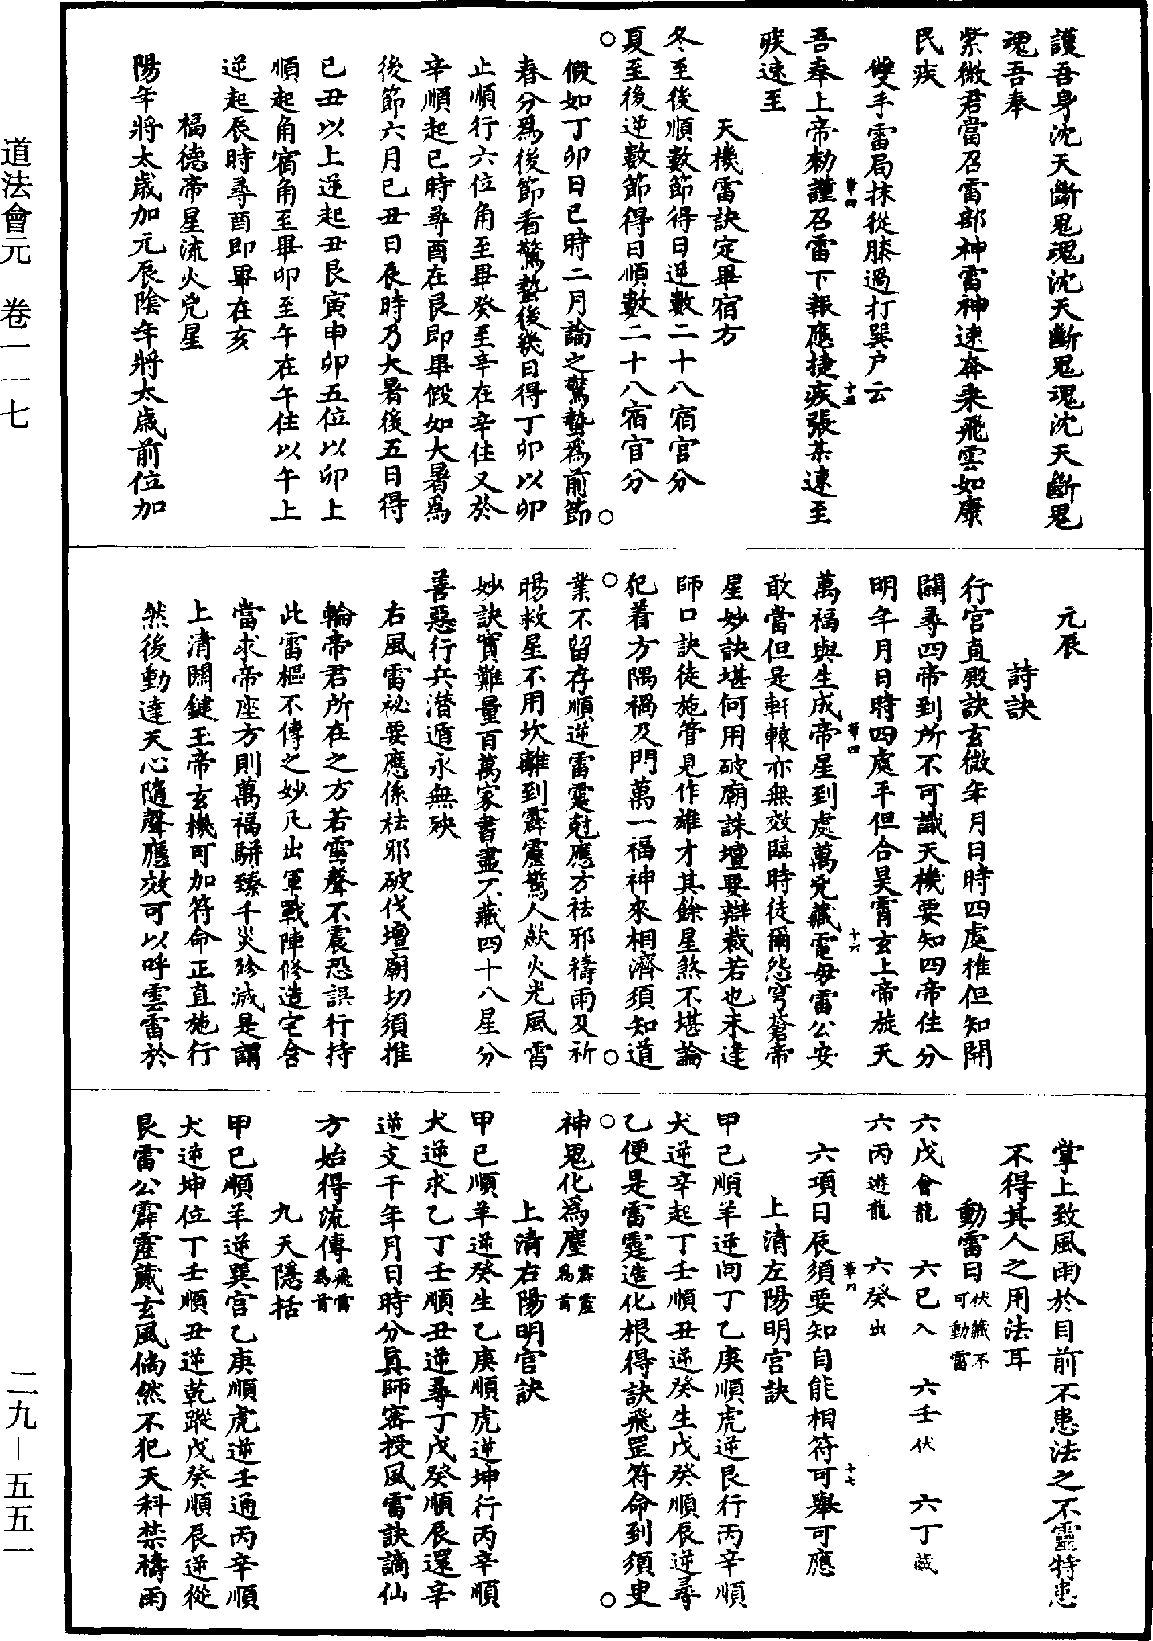 護吾身沈天斷鬼魂沈天斷鬼魂沈天斷鬼
魂吾奉
紫微君當召雷部神雷神速奔來飛雲如康
民疾
雙手雷局抹從膝過打巽户云
吾奉上帝勑謹召雷下報應捷疾張某速至
疾速至
天機雷訣定畢宿方
冬至後順數節得日逆數二十八宿宫分
夏至後逆數節得日順數二十八宿宫分
假如丁卯日巳時二月論之驚蟄爲前節
春分爲後節看驚蟄後幾日得丁卯以卯
止順行六位角至畢癸至辛在辛住又於
辛順起巳時尋酉在艮即畢假如大暑爲
後節六月己丑日辰時乃大暑後五日得
己丑以上逆起丑艮寅申卯五位以卯上
順起角宿角至畢卯至午在午住以午上
逆起辰時尋酉即畢在亥
福德帝星流火兇星
陽年將太歲加元辰陰年將太歲前位加
元辰
詩訣
行宫直殿訣玄微年月日時四處推但知開
闢尋四帝到所不可識天機要知四帝住分
明年月日時四處平但合昊霄玄上帝旋天
萬福與生成帝星到處萬兇藏電毋雷公安
敢當但是軒轅亦無效臨時徒爾怨穹蒼帝
星妙訣堪何用破廟誅壇要辯裁若也未逢
師口訣徒施管見作雄才其餘星煞不堪論
犯着方隅禍及門萬一福神來相濟須知道
業不留存順逆雷霆尅應方祛邪禱雨及祈
暘救星不用坎離到霹靂驚人歘火光風雷
妙訣實難量百萬家書盡不藏四十八星分
善惡行兵潛遁永無殃
右風雷祕要應係祛邪破伐壇廟切須推
輪帝君所在之方若雷聲不震恐誤行持
此雷樞不傳之妙凡出軍戰陣修造宅舍
當求帝座方則萬福駢臻千災殄滅是謂
上清關鍵玉帝玄機可加符命正直施行
然後動達天心隨聲應效可以呼雲雷於
掌上致風雨於目前不患法之不靈特患
不得其人之用法耳
動雷日伏藏不可動雷
六戊會龍　六巳入　六壬伏　六丁藏
六丙遊龍　六癸出
六項日辰須要知自能相符可舉可應
上清左陽明宫訣
甲己順羊逆向丁乙庚順虎逆艮行丙辛順
犬逆辛起丁壬順丑逆癸生戊癸順辰逆尋
乙便是雷霆造化根得訣飛罡符命到須臾
神鬼化爲塵霹靂爲首
上清右陽明官訣
甲己順羊逆癸生乙庚順虎逆坤行丙辛順
犬逆求乙丁壬順丑逆尋丁戊癸順辰還辛
逆支干年月日時分眞師密授風雷訣謫仙
方始得流傳飛雷爲首
九天隱括
甲己順羊逆巽宫乙庚順虎逆壬通丙辛順
犬逆坤位丁壬順丑逆乾蹤戊癸順辰逆從
艮雷公霹靂藏玄風倘然不犯天科禁禱雨
道法會元　卷一一七
二九－五五一